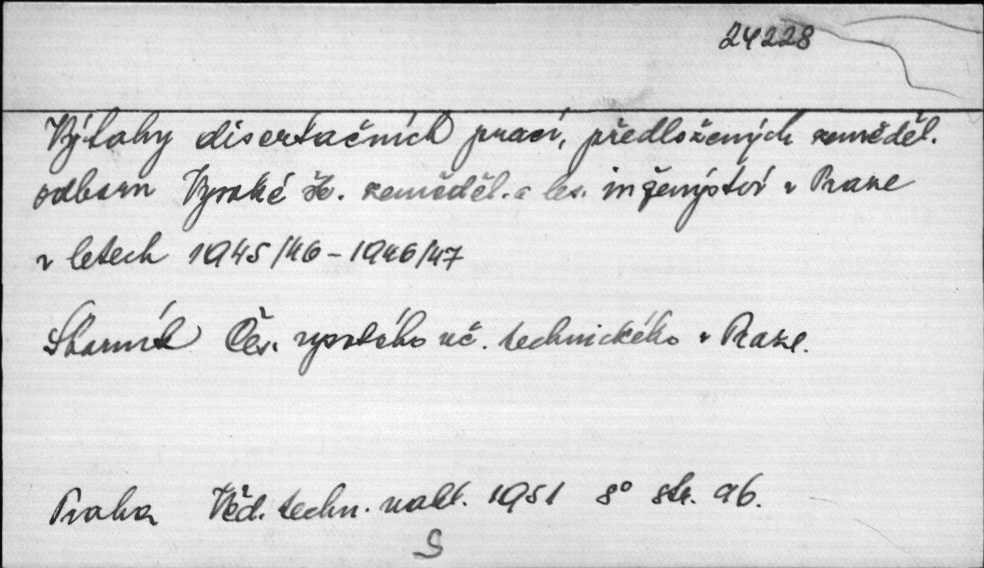 24228
Výtahy disertačních prací, předložených zeměděl.
odborem Vysoké šk. zeměděl. a les. inženýství v Praze
v letech 1945/46 - 1946/47
Sborník Čes. vysokého uč. technického v Praze.
Praha Věd. techn. nakl. 1951 8° str. 96.
S